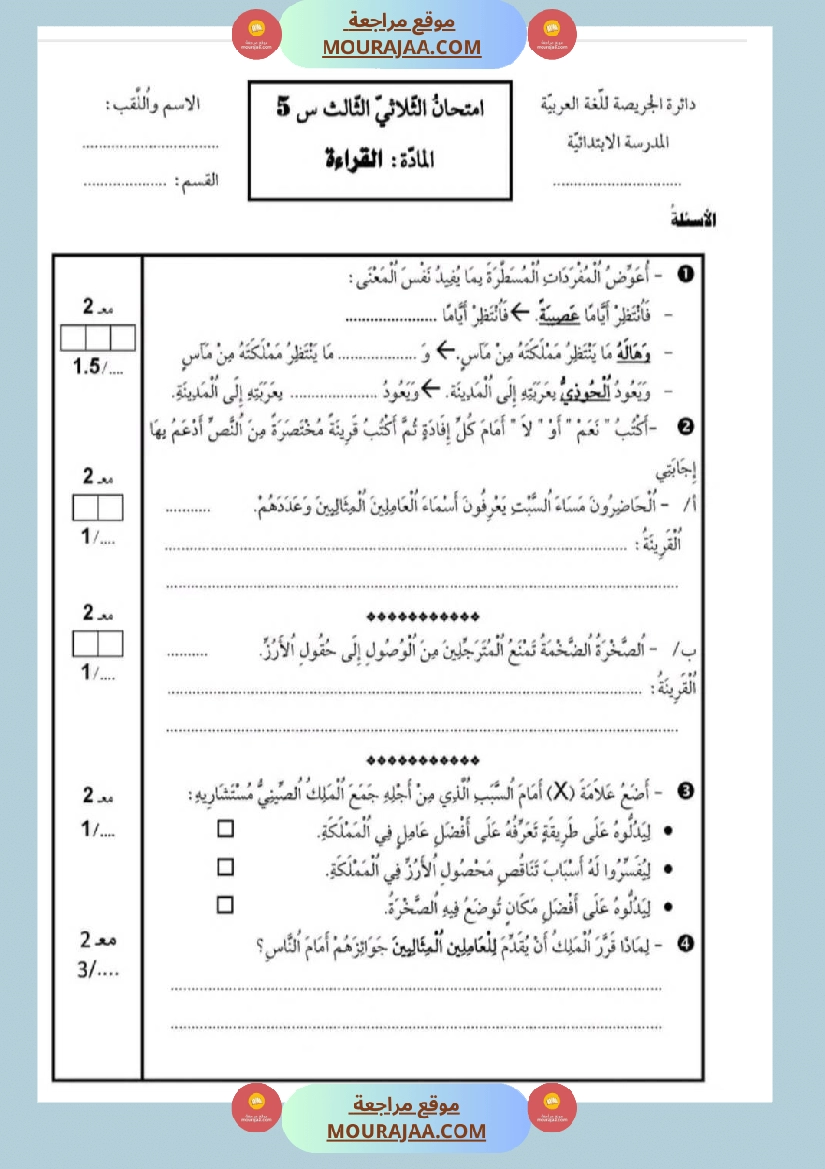 موقع مراجعة
MOURAJAA.COM
دائرة الجريصة للّغة العربيّة
المدرسة الابتدائيّة
..............................
امتحانُ الثّلاثيّ الثّالث س 5
المادّة: القراءة
الاسم واُللَّقب:
................................
القسم: ....................
الأسئلةُ
❶ - أُعَوِّضُ اُلْمُفْرَدَاتِ اُلْمُسَطَّرَةَ بِمَا يُفِيدُ نَفْسَ اُلْمَعْنَى:
- فَاُنْتَظِرْ أَيَّامًا عَصِيبَةً. ← فَاُنْتَظِرْ أَيَّامًا ......................
- وَهَالَهُ مَا يَنْتَظِرُ مَمْلَكَتَهُ مِنْ مَآسٍ. ← وَ ................... مَا يَنْتَظِرُ مَمْلَكَتَهُ مِنْ مَآسٍ
- وَيَعُودُ اُلْحُوذِيُّ بِعَرَبَتِهِ إِلَى اُلْمَدِينَة. ← وَيَعُودُ ..................... بِعَرَبَتِهِ إِلَى اُلْمَدِينَةِ.
معـ 2
1.5/....
❷ -أَكْتُبُ " نَعَمْ " أَوْ " لاَ " أَمَامَ كُلِّ إِفَادَةٍ ثُمَّ أَكْتُبُ قَرِينَةً مُخْتَصَرَةً مِنَ اُلنَّصِّ أَدْعَمُ بِهَا
إِجَابَتِي
أ/ - اُلْحَاضِرُونَ مَسَاءَ اُلسَّبْتِ يَعْرِفُونَ أَسْمَاءَ اُلْعَامِلِينَ اُلْمِثَالِيِينَ وَعَدَدَهُمْ. ...........
اُلْقَرِينَةُ: ................................................................
................................................................
معـ 2
1/....
❖❖❖❖❖❖❖❖❖❖❖
ب/ - اُلصَّخْرَةُ اُلضَّخْمَةُ تَمْنَعُ اُلْمُتَرَجِّلِينَ مِنَ اُلْوُصُولِ إِلَى حُقُولِ اُلأَرُزِّ. ..........
اُلْقَرِينَةُ: ................................................................
................................................................
معـ 2
1/....
❖❖❖❖❖❖❖❖❖❖❖
❸ - أَضَعُ عَلاَمَةَ (X) أَمَامَ اُلسَّبَبِ اُلَّذِي مِنْ أَجْلِهِ جَمَعَ اُلْمَلِكُ اُلصِّينِيُّ مُسْتَشَارِيهِ:
● لِيَدُلُّوهُ عَلَى طَرِيقَةٍ تُعَرِّفُهُ عَلَى أَفْضَلِ عَامِلٍ فِي اُلْمَمْلَكَةِ. □
● لِيُفَسِّرُوا لَهُ أَسْبَابَ تَنَاقُصِ مَحْصُولِ اُلأَرُزِّ فِي اُلْمَمْلَكَةِ. □
● لِيَدُلُّوهُ عَلَى أَفْضَلِ مَكَانٍ تُوضَعُ فِيهِ اُلصَّخْرَةُ. □
معـ 2
1/....
❹ - لِمَاذَا قَرَّرَ اُلْمَلِكُ أَنْ يُقَدِّمَ لِلْعَامِلِين اُلْمِثَالِيِينَ جَوَائِزَهُمْ أَمَامَ اُلنَّاسِ؟
................................................................
................................................................
معـ 2
3/....
موقع مراجعة
MOURAJAA.COM